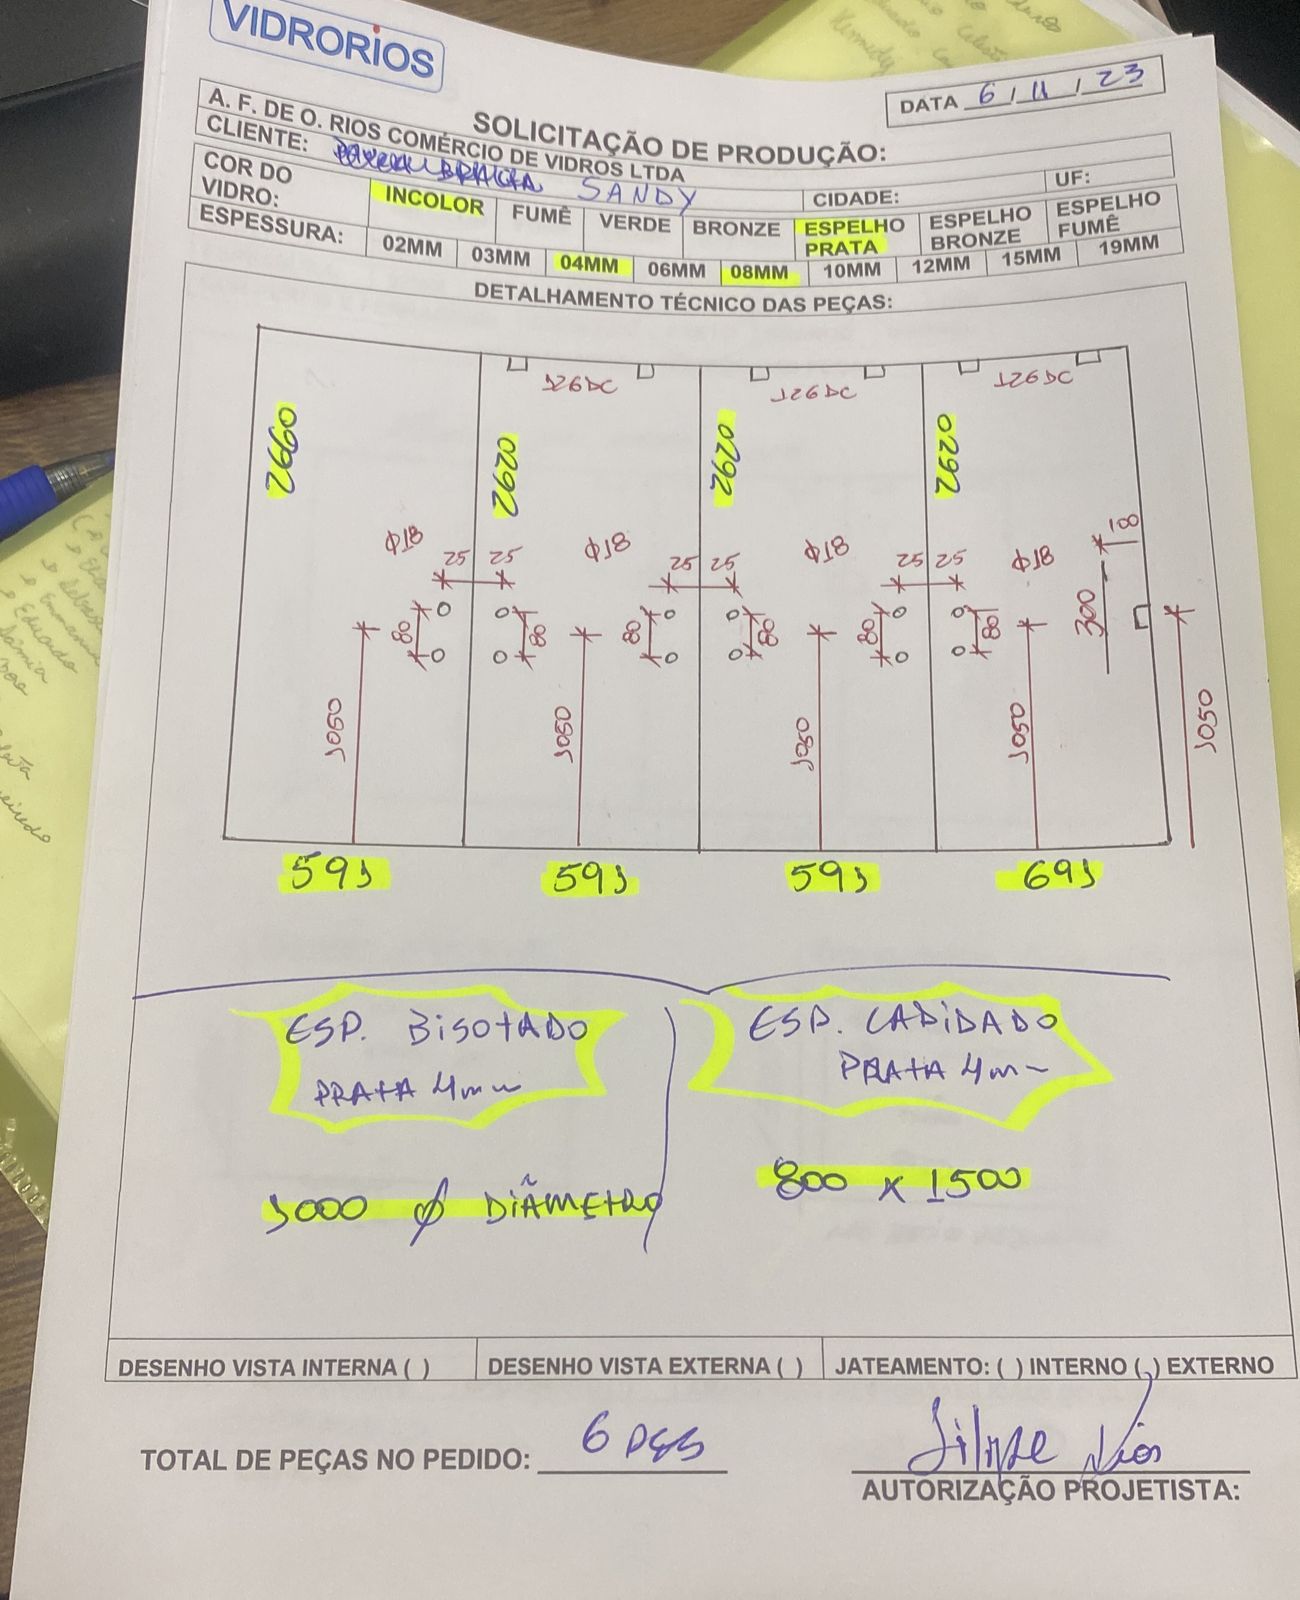 VIDRORIOS
DATA 6 / 11 / 23
SOLICITAÇÃO DE PRODUÇÃO:
A. F. DE O. RIOS COMÉRCIO DE VIDROS LTDA
CLIENTE: SANDY CIDADE: UF:
COR DO VIDRO: INCOLOR FUMÊ VERDE BRONZE ESPELHO PRATA ESPELHO BRONZE ESPELHO FUMÊ
ESPESSURA: 02MM 03MM 04MM 06MM 08MM 10MM 12MM 15MM 19MM
DETALHAMENTO TÉCNICO DAS PEÇAS:
126DC 126DC 126DC
2660 2620 2620 2620
Φ18 Φ18 Φ18 Φ18 100
25 25 25 25 25 25
80 80 80 80 80 80 300
1050 1050 1050 1050 1050
591 591 591 691
ESP. BISOTADO
PRATA 4mm
1000 Ø DIÂMETRO
ESP. LAPIDADO
PRATA 4mm
800 x 1500
DESENHO VISTA INTERNA ( ) DESENHO VISTA EXTERNA ( ) JATEAMENTO: ( ) INTERNO ( ) EXTERNO
TOTAL DE PEÇAS NO PEDIDO: 6 PÇS
Filipe Rios
AUTORIZAÇÃO PROJETISTA:
Eduardo